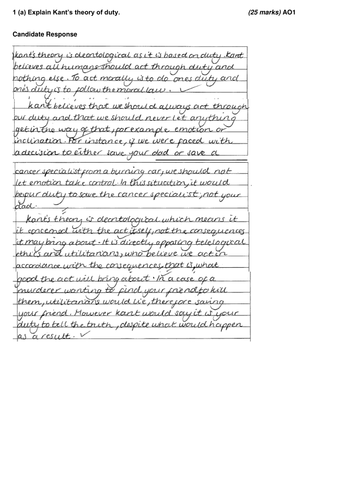 1 (a) Explain Kant's theory of duty. (25 marks) AO1
Candidate Response
Kants theory is deontological as it is based on duty. Kant
believes all humans should act through duty and
nothing else. To act morally is to do ones duty and
one's duty is to follow the moral law.
Kant believes that we should always act through
our duty and that we should never let anything
get in the way of that, for example emotion or
inclination. For instance, if we were faced with
a decision to either save your dad or save a
cancer specialist from a burning car, we should not
let emotion take control. In this situation, it would
be your duty to save the cancer specialist, not your
dad.
Kants theory is deontological which means it
it concerned with the act itself, not the consequences
it may bring about. It is directly opposing teleological
ethics and utilitarians, who believe we act in
accordance with the consequences, that is, what
good the act will bring about. In a case of a
murderer wanting to find your friend to kill
them, utilitarians would lie, therefore saving
your friend. However Kant would say it is your
duty to tell the truth, despite what would happen
as a result.